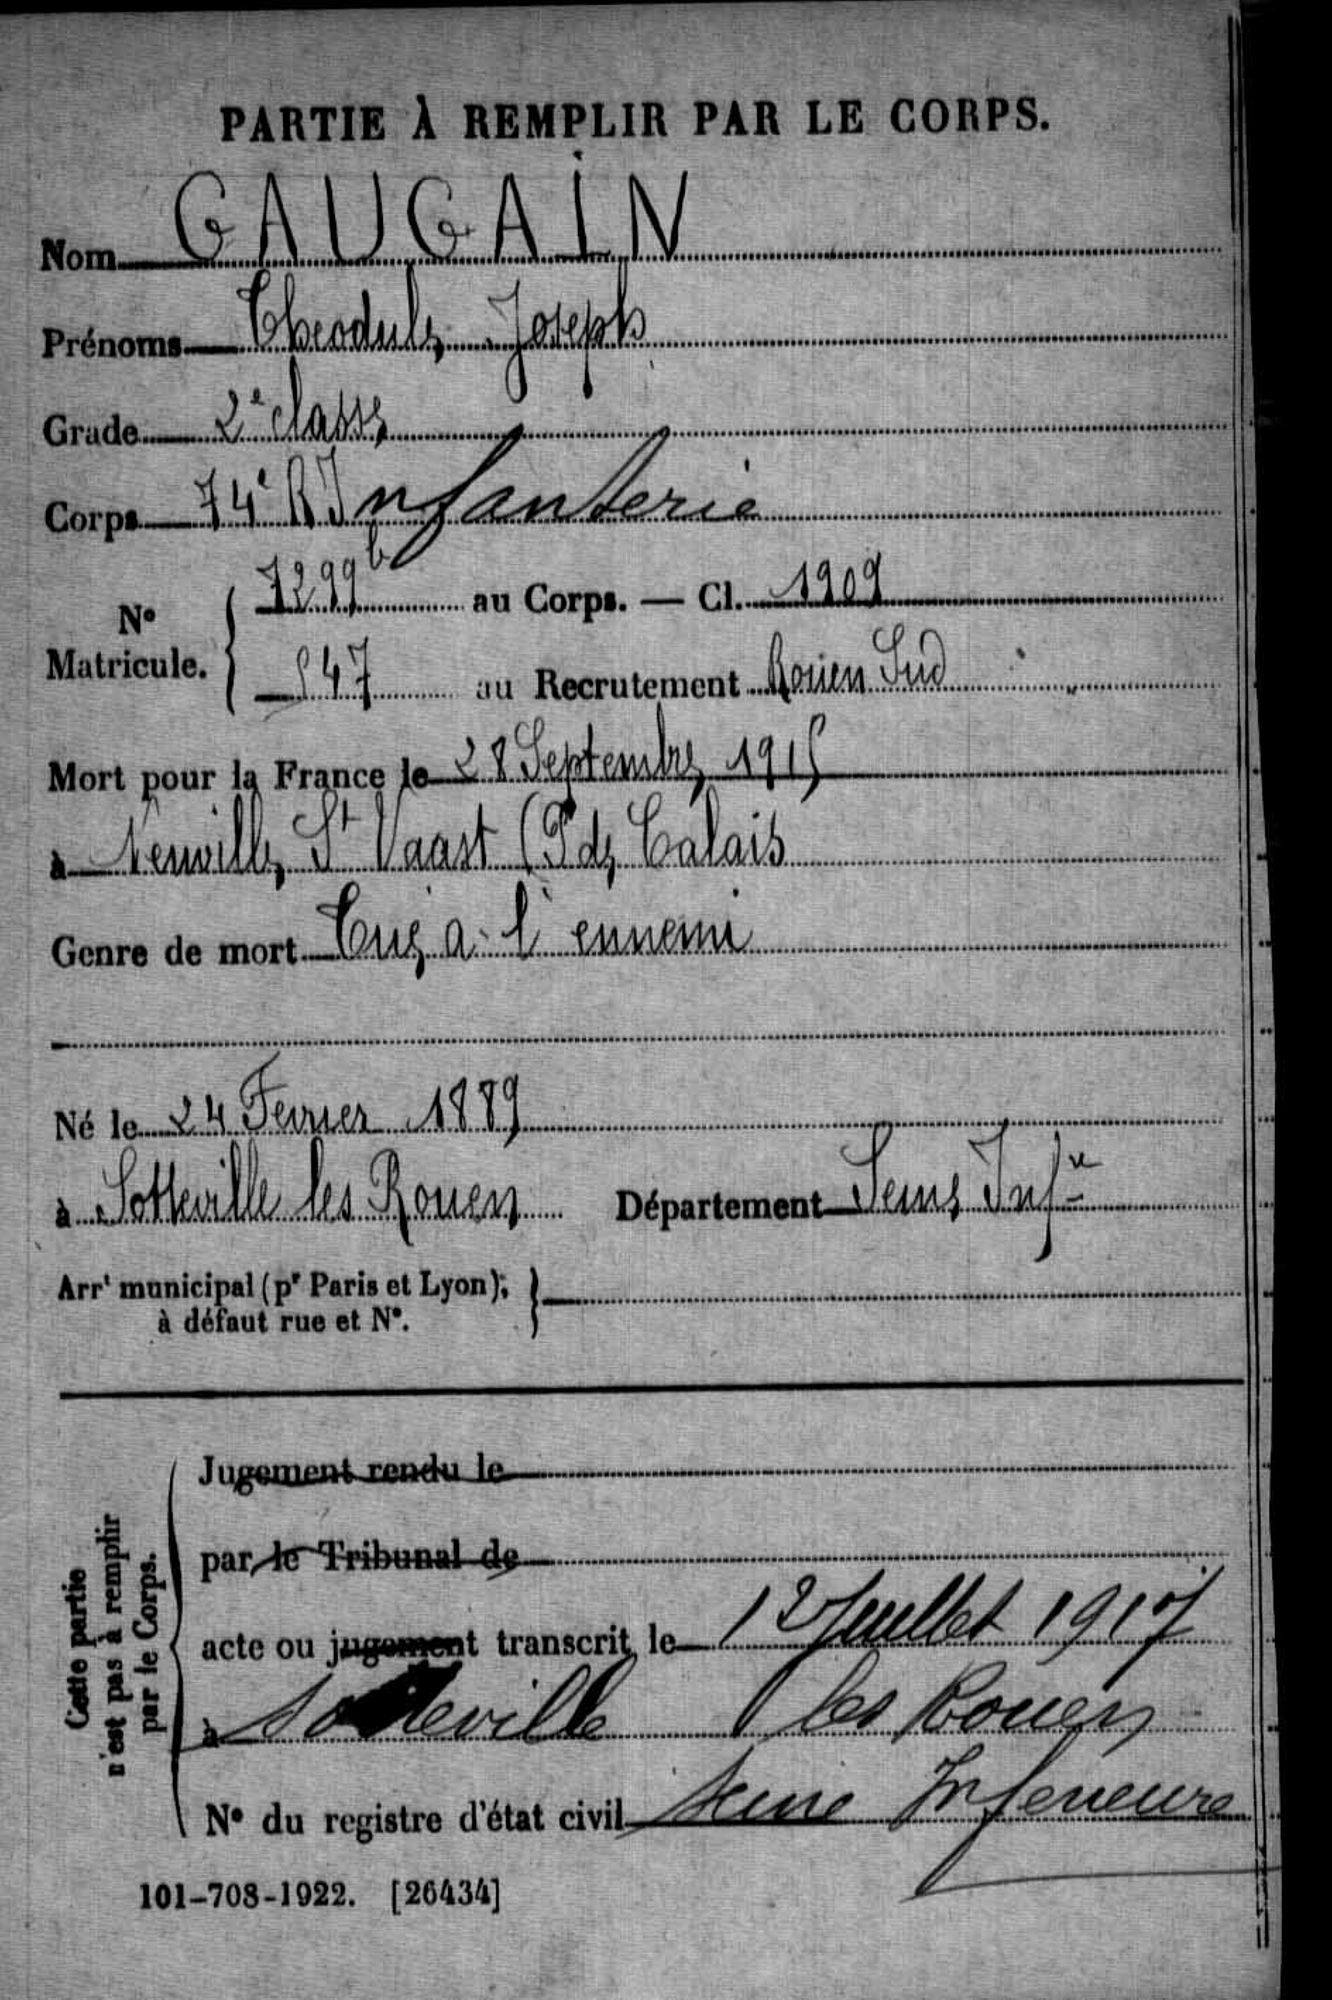 PARTIE À REMPLIR PAR LE CORPS.
Nom GAUGAIN
Prénoms Theodule Joseph
Grade 2e classe
Corps 74e R Infanterie
No Matricule. 7299 b au Corps. — Cl. 1909
547 au Recrutement Rouen Sud
Mort pour la France le 28 Septembre 1915
à Neuville St Vaast (P de Calais
Genre de mort Tué a l'ennemi
Né le 24 Fevrier 1889
à Sotteville les Rouen Département Seine Infre
Arrt municipal (pr Paris et Lyon),
à défaut rue et No.
Cette partie
n'est pas à remplir
par le Corps.
Jugement rendu le
par le Tribunal de
acte ou jugement transcrit le 12 Juillet 1917
à Sotteville les Rouen
No du registre d'état civil Seine Inferieure
101-708-1922. [26434]